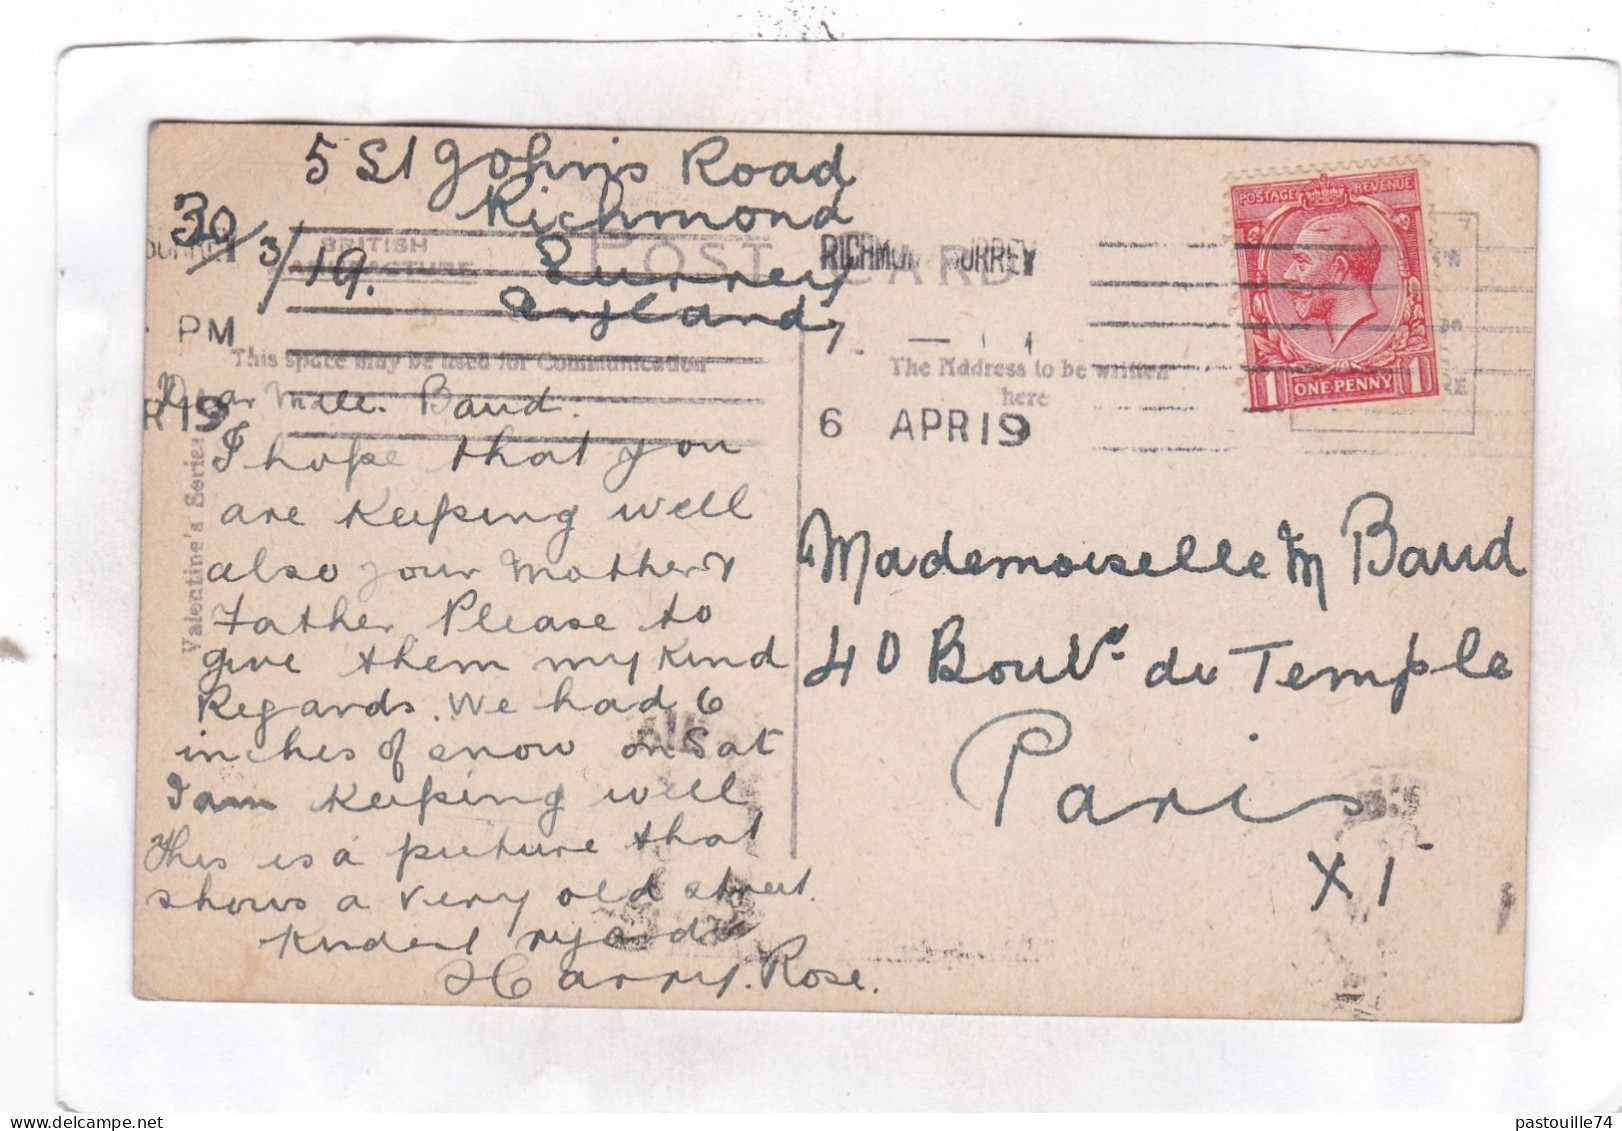 5 St Johns Road
Richmond
Surrey
England,
30/3/19.
BRITISH
MANUFACTURE
POST CARD
RICHMOND SURREY
PM
This space may be used for Communication
The Address to be written
here
R 19
6 APR 19
Valentine's Series
POSTAGE REVENUE
1 ONE PENNY 1
Dear Mdlle. Baud.
I hope that you
are Keeping well
also your Mother &
Father Please to
give them my Kind
Regards. We had 6
inches of snow on Sat
I am Keeping well
This is a picture that
shows a very old street.
Kindest regards
Harry. Rose.
Mademoiselle M Baud
40 Boulv. du Temple
Paris
XI
pastouille74